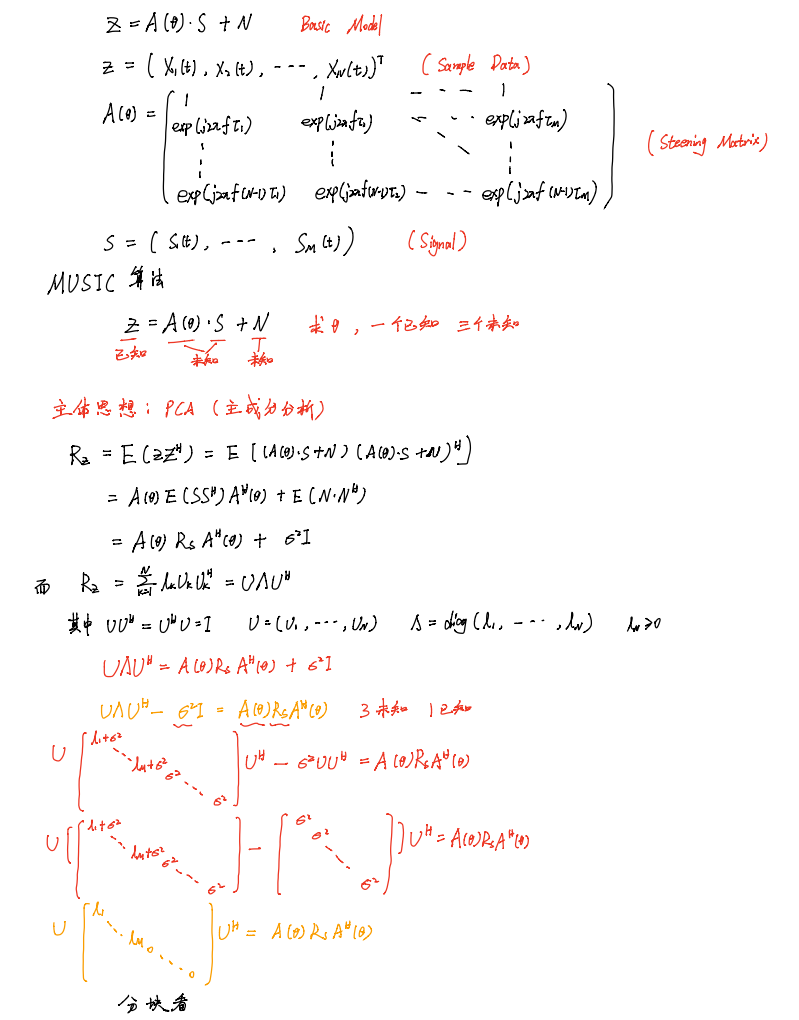 Z = A(θ)·S + N Basic Model
Z = ( X₁(t), X₂(t), ---, X_N(t) )ᵀ (Sample Data)
1 1 --- 1
A(θ) = exp(j2πfτ₁) exp(j2πfτ₁) --- exp(j2πfτ_M)
(Steering Matrix)
exp(j2πf(N-1)τ₁) exp(j2πf(N-1)τ₂) --- exp(j2πf(N-1)τ_M)
S = ( S₁(t), ---, S_M(t) ) (Signal)
MUSIC 算法
Z = A(θ)·S + N 求θ, 一个已知 三个未知
已知 未知 未知
主体思想: PCA (主成分分析)
R_z = E(ZZᴴ) = E[(A(θ)·S+N)(A(θ)·S+N)ᴴ]
= A(θ)E(SSᴴ)Aᴴ(θ) + E(N·Nᴴ)
= A(θ) R_s Aᴴ(θ) + σ²I
而 R_z = Σ_{k=1}^{N} l_k U_k U_kᴴ = UΛUᴴ
其中 UUᴴ = UᴴU = I U = (U₁, ---, U_N) Λ = diag(l₁, ---, l_N) l_N ≥ 0
UΛUᴴ = A(θ)R_s Aᴴ(θ) + σ²I
UΛUᴴ - σ²I = A(θ)R_s Aᴴ(θ) 3未知 1已知
U [ l₁+σ² ⋱ l_M+σ² σ² ⋱ σ² ] Uᴴ - σ²UUᴴ = A(θ)R_s Aᴴ(θ)
U [ [ l₁+σ² ⋱ l_M+σ² σ² ⋱ σ² ] - [ σ² σ² ⋱ σ² ] ] Uᴴ = A(θ)R_s Aᴴ(θ)
U [ l₁ ⋱ l_M 0 ⋱ 0 ] Uᴴ = A(θ) R_s Aᴴ(θ)
分块看